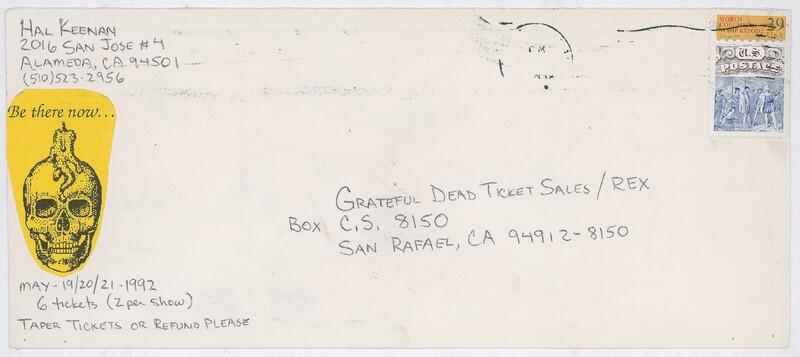 HAL KEENAN
2016 SAN JOSE #4
ALAMEDA, CA 94501
(510)523-2956
Be there now...
WORLD
COLUMBIAN
STAMP EXPO
29
USA
U.S.
POSTAGE
GRATEFUL DEAD TICKET SALES / REX
BOX C.S. 8150
SAN RAFAEL, CA 94912-8150
MAY-19/20/21-1992
6 tickets (2 per show)
TAPER TICKETS OR REFUND PLEASE